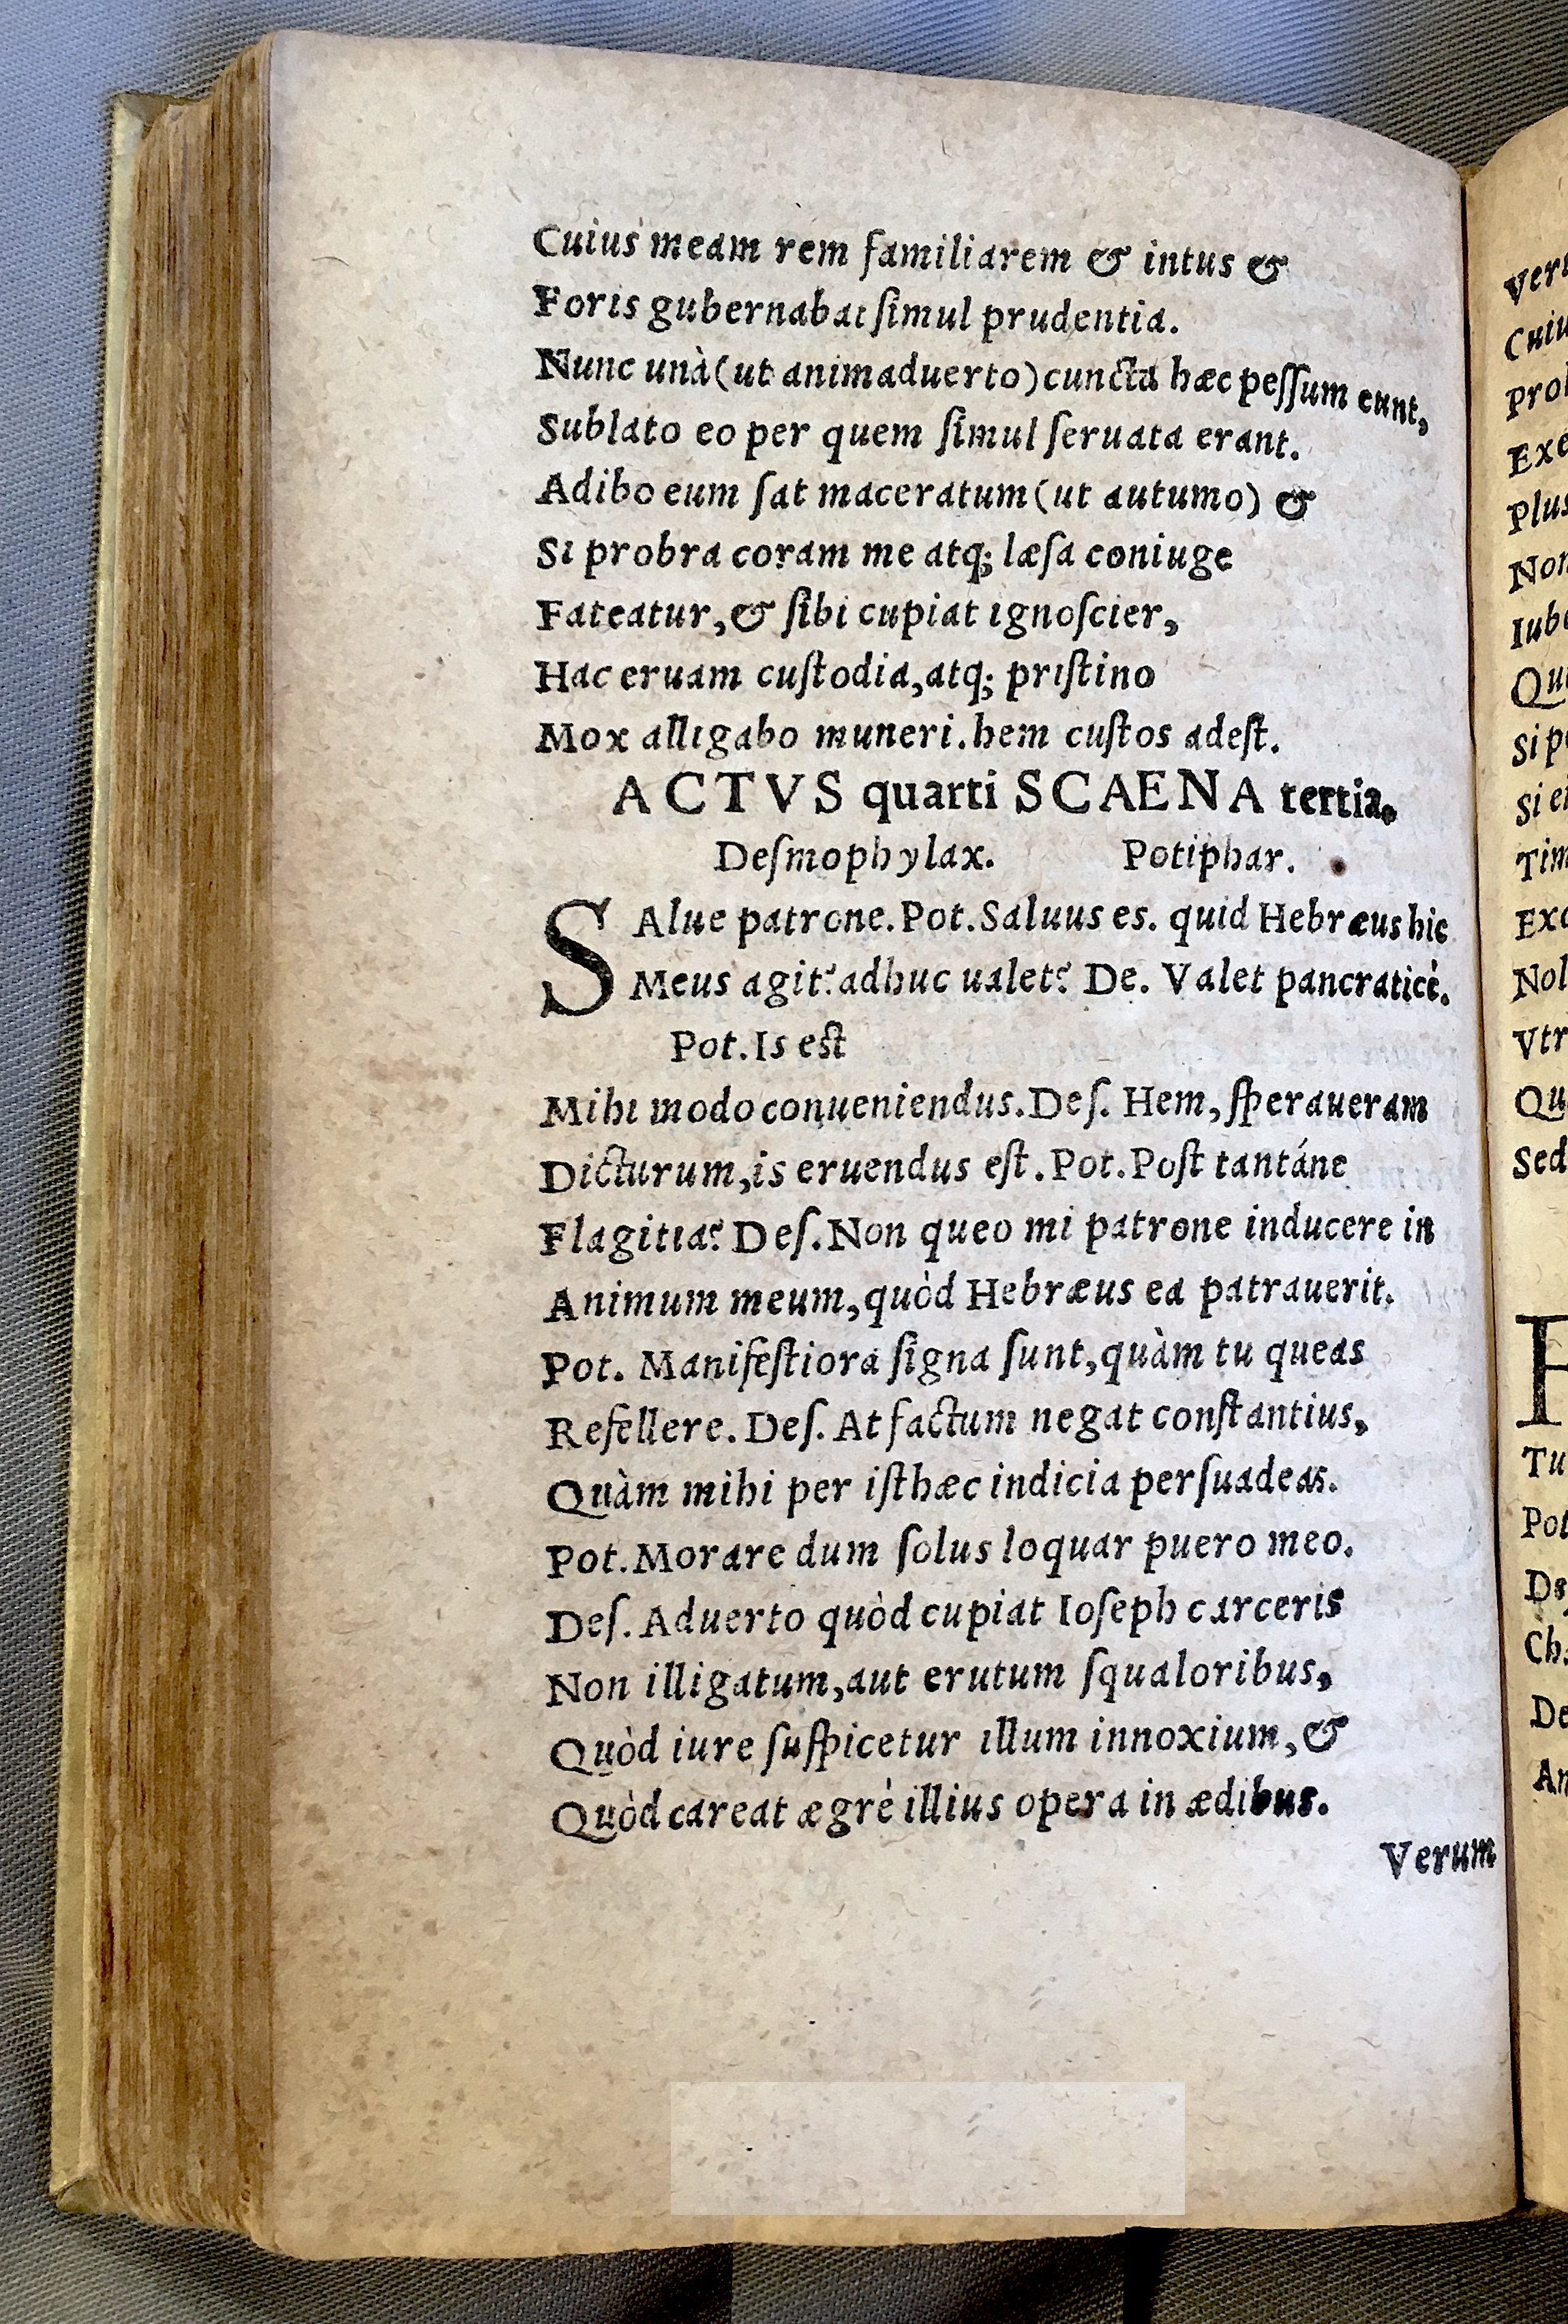 Cuius meam rem familiarem & intus &
Foris gubernabat ſimul prudentia.
Nunc unà (ut animaduerto) cuncta hæc peſſum eunt,
Sublato eo per quem ſimul ſeruata erant.
Adibo eum ſat maceratum (ut autumo) &
Si probra coram me atq; læſa coniuge
Fateatur, & ſibi cupiat ignoſcier,
Hac eruam cuſtodia, atq; priſtino
Mox alligabo muneri. hem cuſtos adeſt.
ACTVS quarti SCAENA tertia.
Deſmophylax. Potiphar.
SAlue patrone. Pot. Saluus es. quid Hebræus hic
Meus agit? adhuc ualet? De. Valet pancraticè.
Pot. Is est
Mihi modo conueniendus. Deſ. Hem, ſperaueram
Dicturum, is eruendus eſt. Pot. Poſt tantáne
Flagitia? Deſ. Non queo mi patrone inducere in
Animum meum, quòd Hebræus ea patrauerit.
Pot. Manifeſtiora ſigna ſunt, quàm tu queas
Refellere. Deſ. At factum negat conſtantius,
Quàm mihi per iſthæc indicia perſuadeas.
Pot. Morare dum ſolus loquar puero meo.
Deſ. Aduerto quòd cupiat Ioſeph carceris
Non illigatum, aut erutum ſqualoribus,
Quòd iure ſuſpicetur illum innoxium, &
Quòd careat ægrè illius opera in ædibus.
Verum
Cuiu
Plus
Non
Sed
Tu
Pot